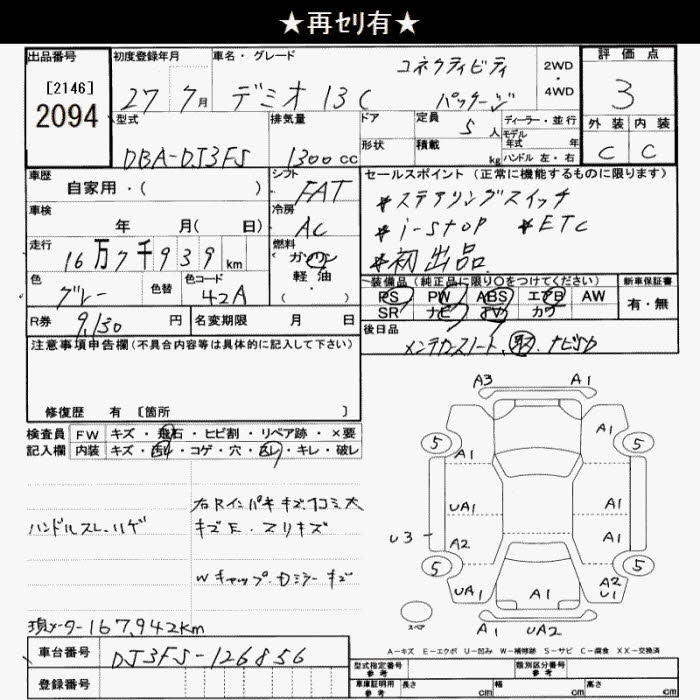 ★再ｾﾘ有★
出品番号 初度登録年月 車名・グレード コネクティビティ 2WD ・ 4WD 評価点
[2146] 2094 27 7月 デミオ 13C パッケージ 3
型式 排気量 ドア 定員 5人 ディーラー・並行 外装 内装
DBA-DJ3FS 1300cc 形状 積載 kg モデル年式 年 ハンドル 左・右 C C
車歴 シフト セールスポイント (正常に機能するものに限ります)
自家用・( ) FAT *ステアリングスイッチ
車検 冷房 *i-stop *ETC
年 月( 日) AC *初出品
走行 16万7千939km 燃料 ガソリン 軽油 ( ・ )
装備品 (純正品に限り○をつけてください) 新車保証書
色 グレー 色替 色コード 42A PS PW ABS エアB AW 有・無
SR ナビ TV カワ
R券 9,130円 名変期限 月 日 後日品
メンテナンスノート、取、ナビSD
注意事項申告欄(不具合内容等は具体的に記入して下さい)
修復歴 有 [箇所 ]
検査員 FW キズ・飛石・ヒビ割・リペア跡・×要
記入欄 内装 キズ・汚れ・コゲ・穴・スレ・キレ・破レ
右Rインパネキズ凹コミ大
ハンドルスレ、ハゲ キズE・スリキズ
Wキャップ・Dミラーキズ
現メーター167,942km
A3 A1
5 A1 A1 5
UA1 A1
U3 A2 A1
5 5
UA1 A1 A2 U1
スペア A1 UA2
A−キズ E−エクボ U−凹み W−補修跡 S−サビ C−腐食 XX−交換済
車台番号 DJ3FS-126856
型式指定番号 参考 類別区分番号 参考
登録番号 車庫証明用 参考 長さ cm 幅 cm 高さ cm